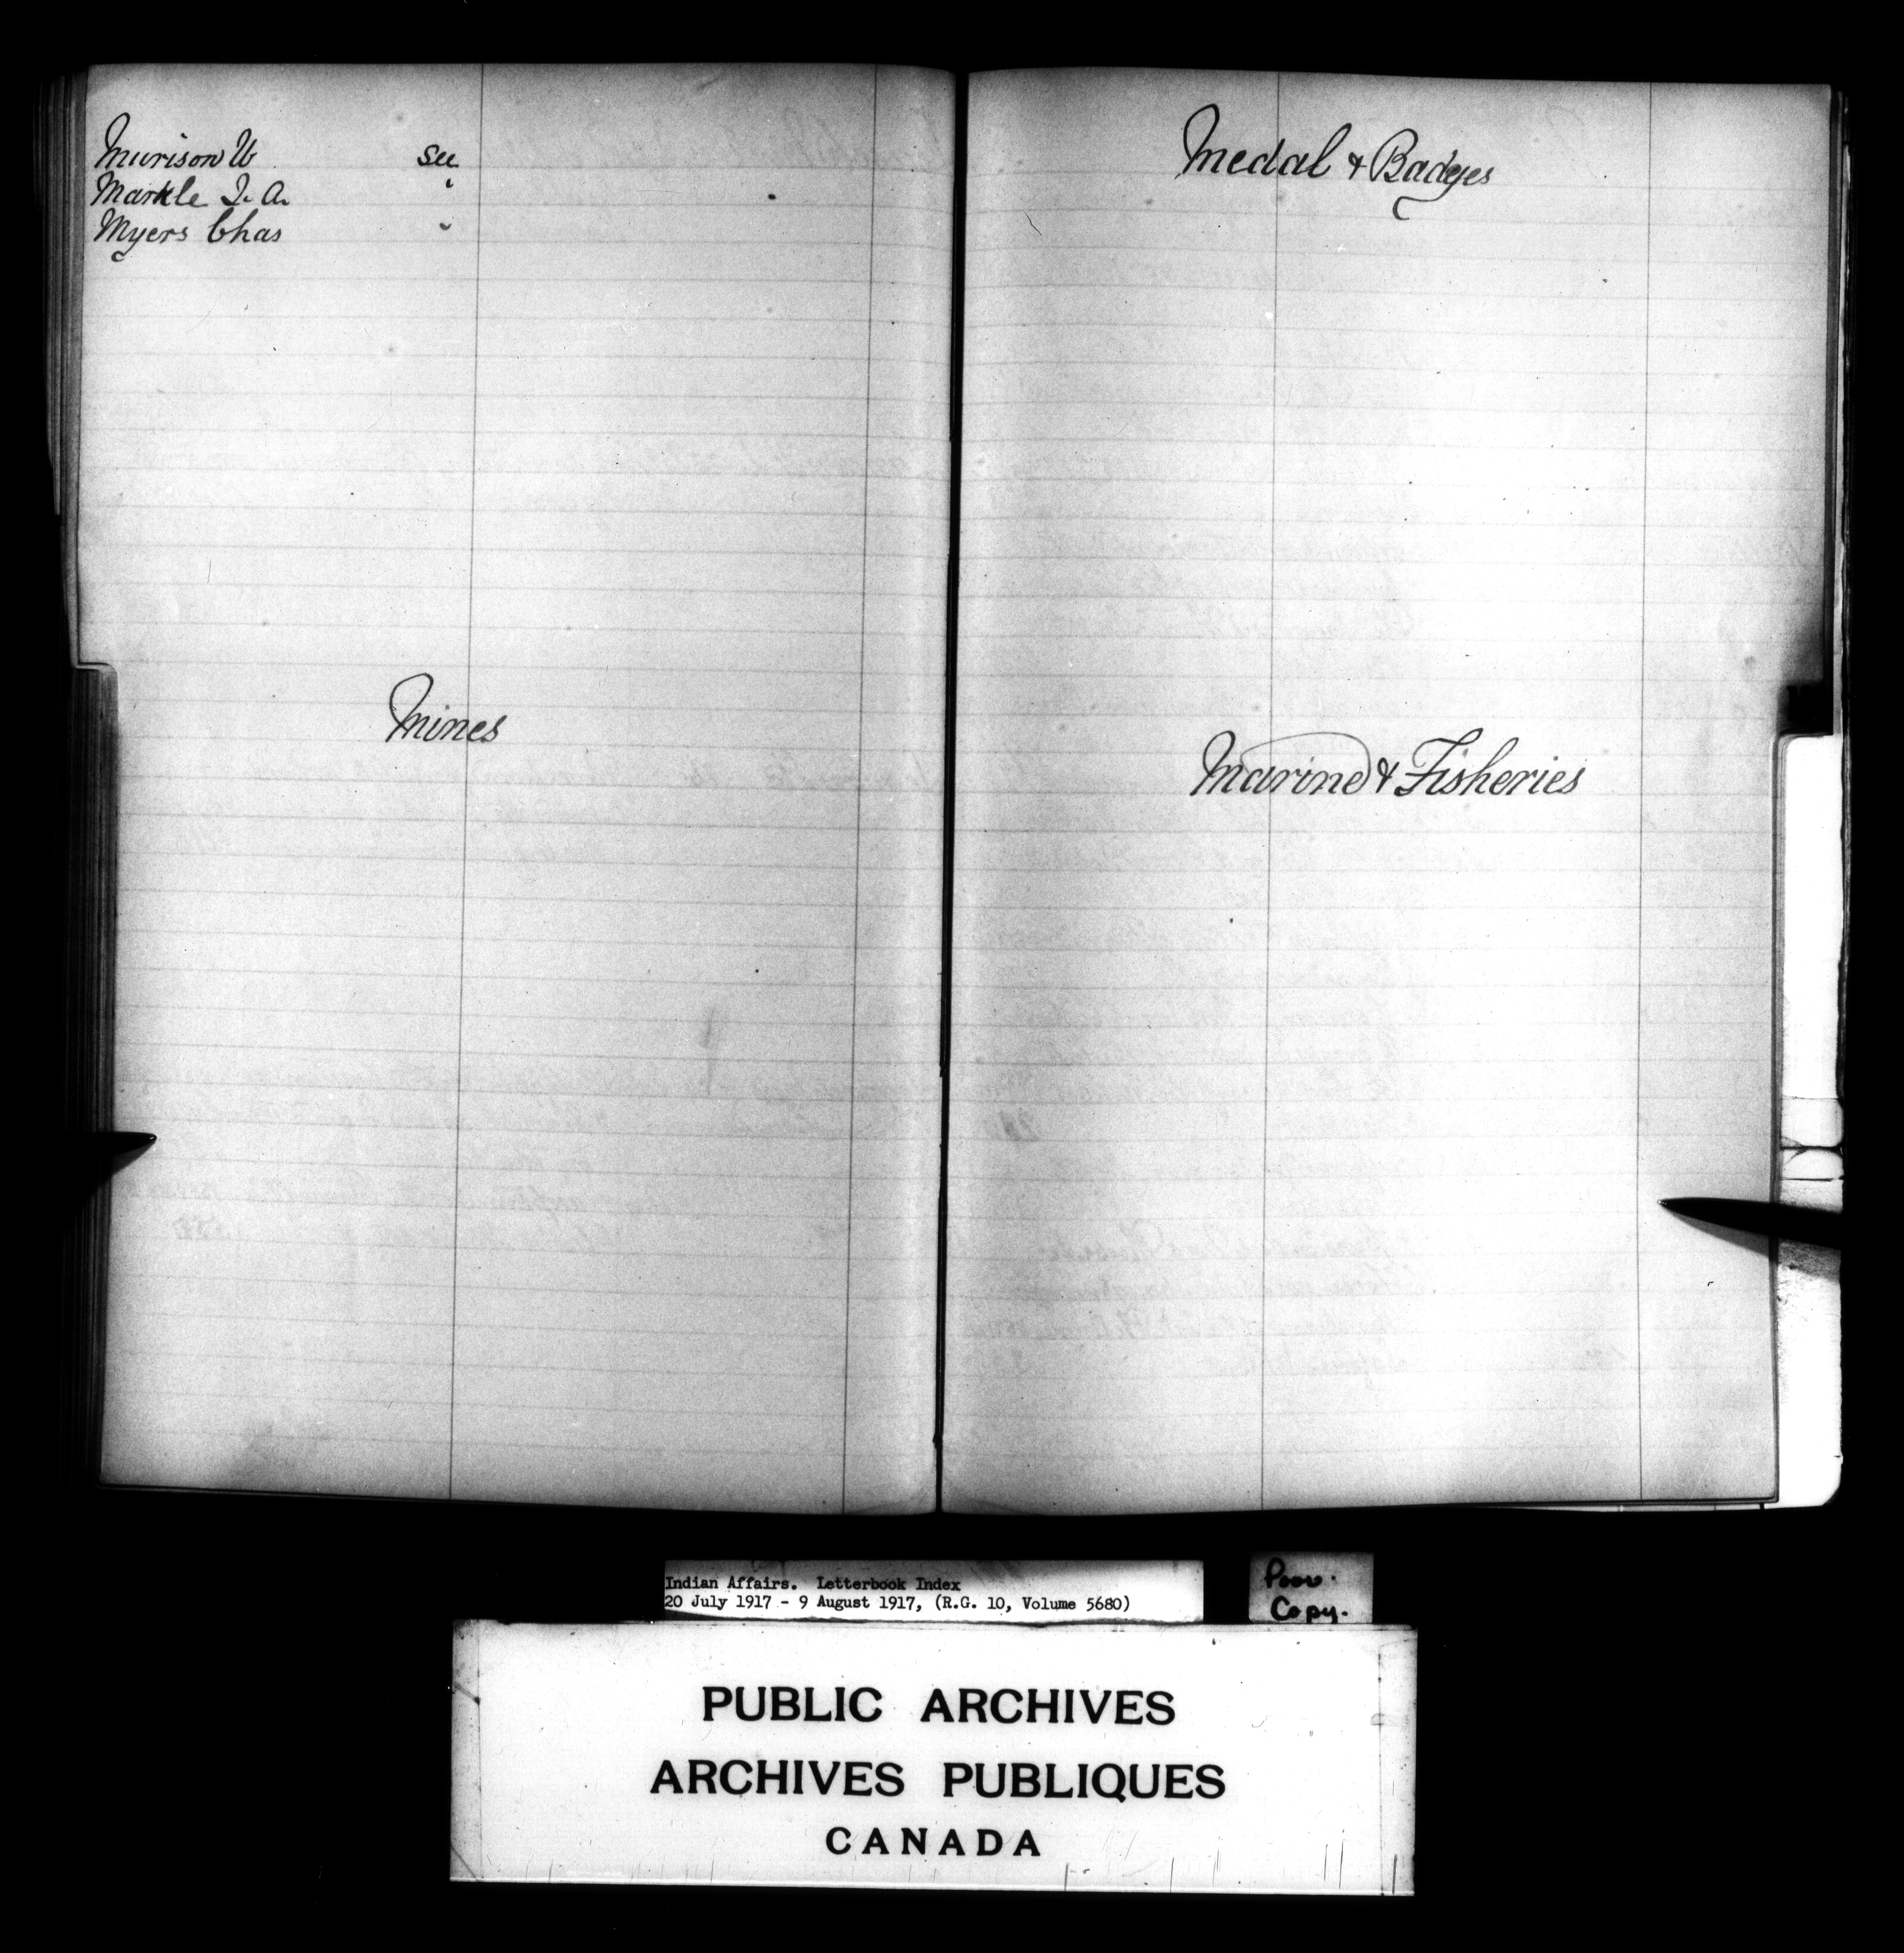 Murison W see
Markle J. A. "
Myers Chas "
Mines
Medal & Badges
Marine & Fisheries
Indian Affairs. Letterbook Index
20 July 1917 - 9 August 1917, (R.G. 10, Volume 5680)
Poor.
Copy.
PUBLIC ARCHIVES
ARCHIVES PUBLIQUES
CANADA